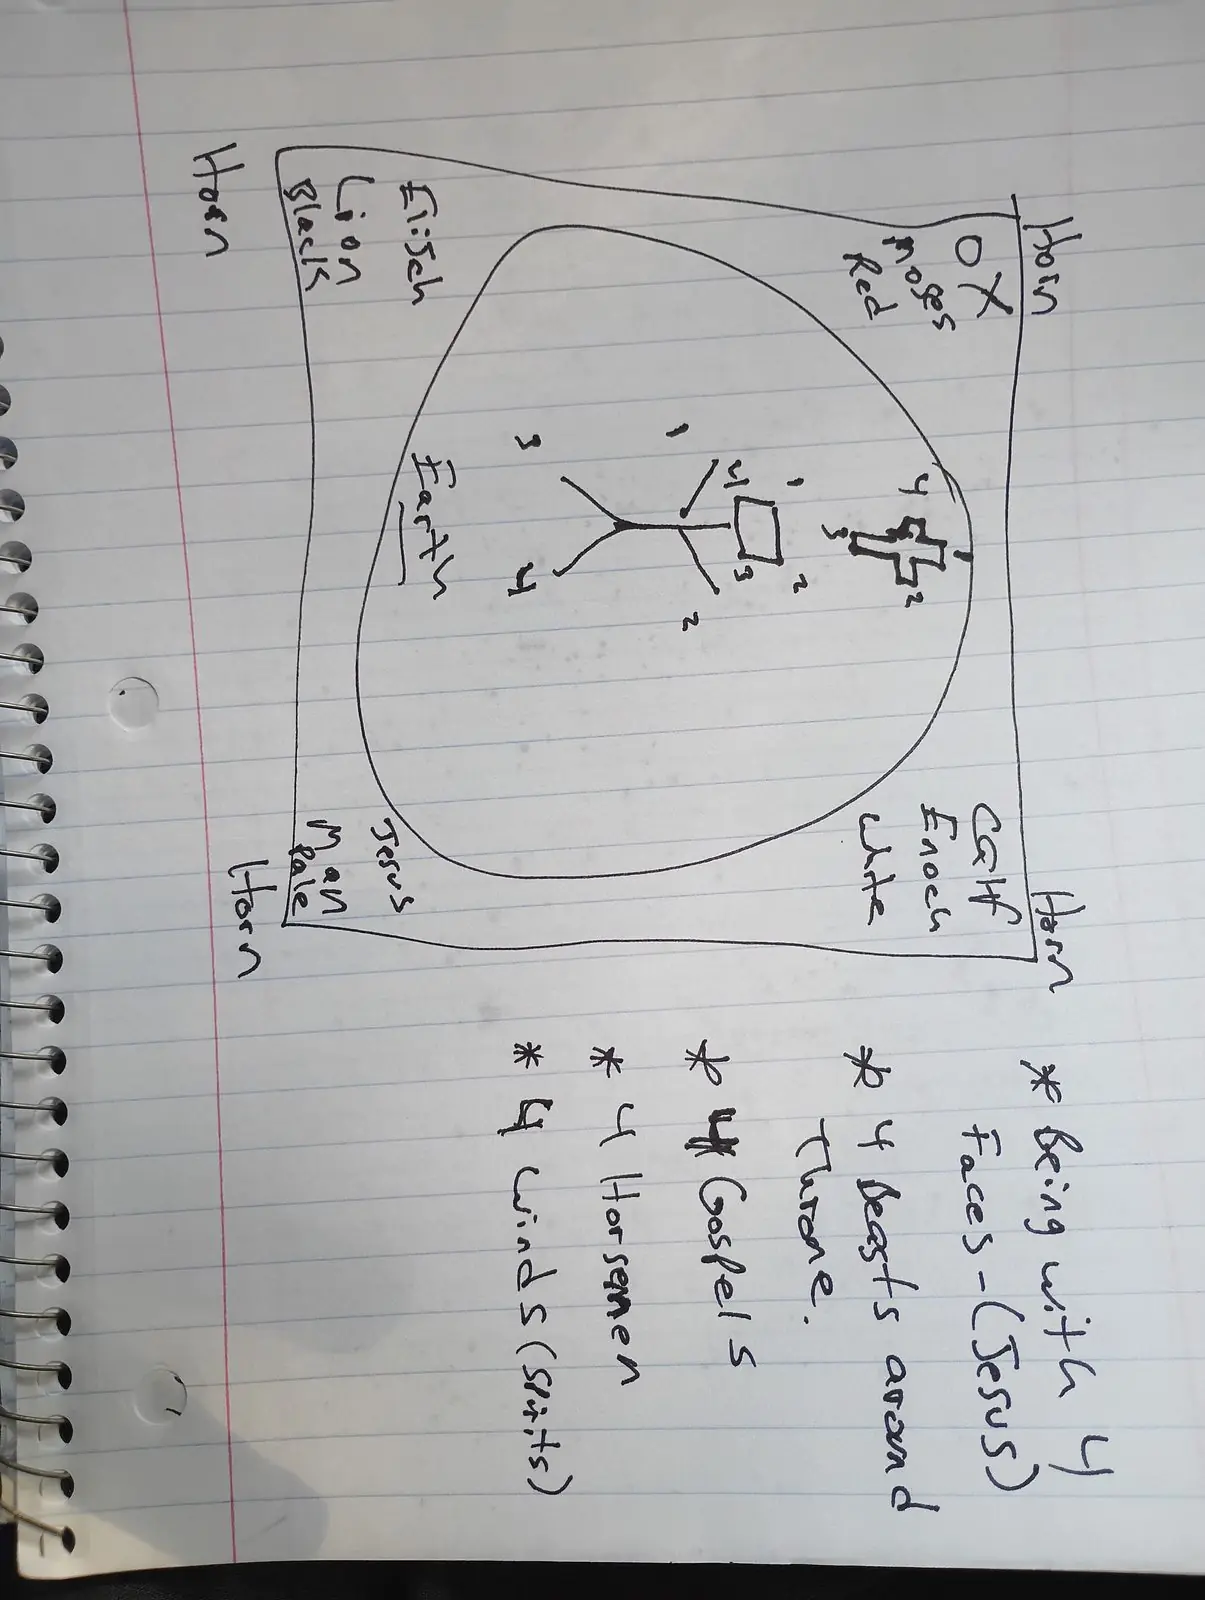 Horn
OX
Moses
Red
Horn
Calf
Enoch
White
1
4 2
3
1 2
4 3
1 2
3 4
Earth
Elijah
Lion
Black
Horn
Jesus
Man
Pale
Horn
* Being with 4
Faces - (Jesus)
* 4 Beasts around
Throne.
* 4 Gospels
* 4 Horsemen
* 4 winds (spirits)